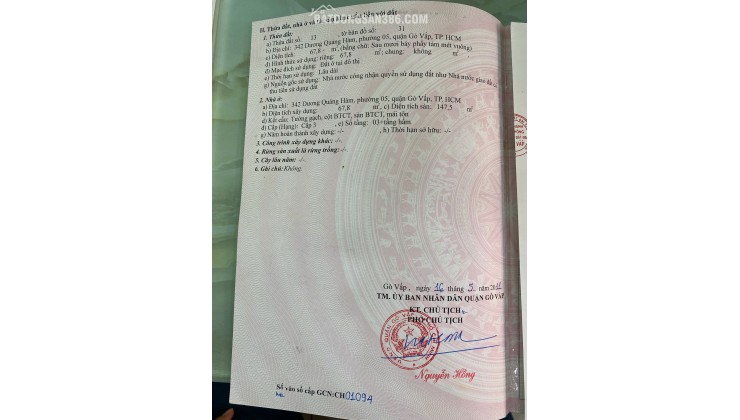 BATDONGSAN366.COM
II. Thửa đất, nhà ở và tài sản khác gắn liền với đất
1. Thửa đất:
a) Thửa đất số: 13 , tờ bản đồ số: 31
b) Địa chỉ: 342 Dương Quảng Hàm, phường 05, quận Gò Vấp, TP. HCM
c) Diện tích: 67,8 m², (bằng chữ: Sáu mươi bảy phẩy tám mét vuông)
d) Hình thức sử dụng: riêng: 67,8 m²; chung: không m²
đ) Mục đích sử dụng: Đất ở tại đô thị
e) Thời hạn sử dụng: Lâu dài
g) Nguồn gốc sử dụng: Nhà nước công nhận quyền sử dụng đất như Nhà nước giao đất có
thu tiền sử dụng đất
2. Nhà ở:
a) Địa chỉ: 342 Dương Quảng Hàm, phường 05, quận Gò Vấp, TP. HCM
b) Diện tích xây dựng: 67,8 m², c) Diện tích sàn: 147,5 m²
d) Kết cấu: Tường gạch, cột BTCT, sàn BTCT, mái tôn
đ) Cấp (Hạng): Cấp 3 , e) Số tầng: 03+tầng hầm
g) Năm hoàn thành xây dựng: -/- , h) Thời hạn sở hữu: -/-
3. Công trình xây dựng khác: -/-
4. Rừng sản xuất là rừng trồng: -/-
5. Cây lâu năm: -/-
6. Ghi chú: Không.
Gò Vấp , ngày 16 tháng 5 năm 2011
TM. ỦY BAN NHÂN DÂN QUẬN GÒ VẤP
KT. CHỦ TỊCH
PHÓ CHỦ TỊCH
Nguyễn Hồng
Số vào sổ cấp GCN:CH01094